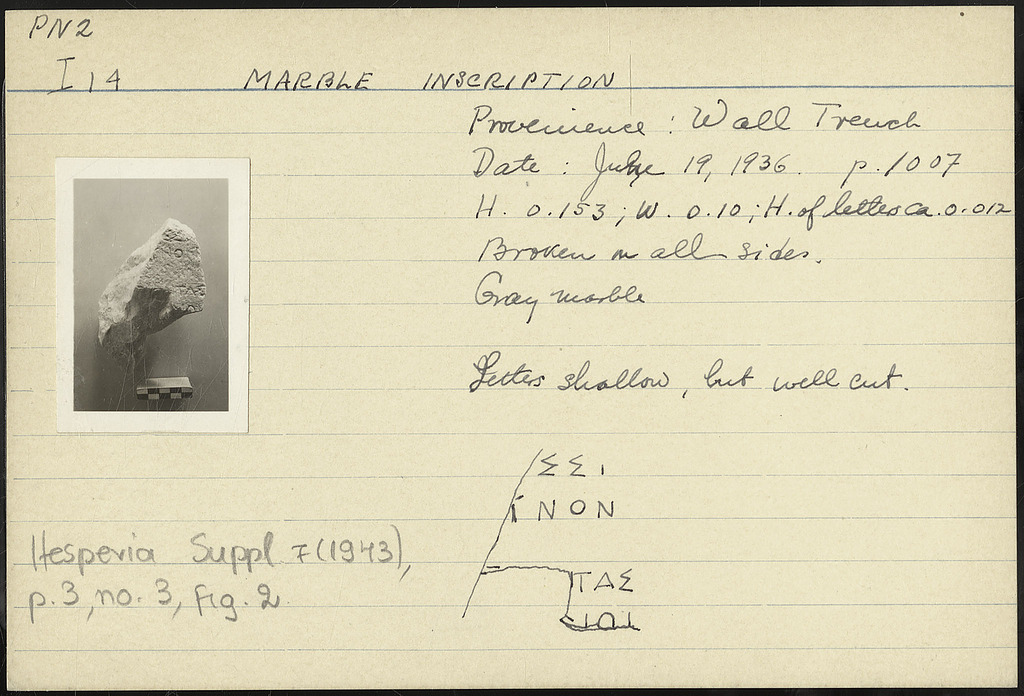 PN2
I 14 MARBLE INSCRIPTION
Provenience : Wall Trench
Date : June 19, 1936. p. 1007
H. 0.153 ; W. 0.10 ; H. of letters ca. 0.012
Broken on all sides.
Gray marble
Letters shallow, but well cut.
Σ Σ Ι
Ι Ν Ο Ν
Τ Α Σ
Hesperia Suppl 7 (1943),
p. 3, no. 3, fig. 2